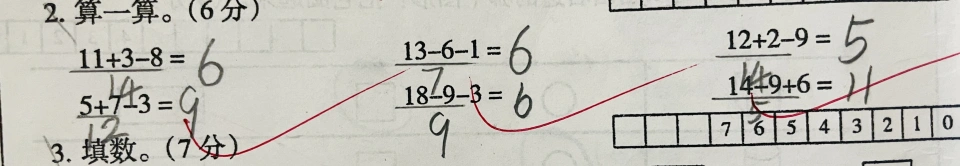 2. 算一算。(6分)
11+3-8= 6 13-6-1= 6 12+2-9= 5
14 7 14
5+7-3= 9 18-9-3= 6 14-9+6= 11
12 9 5
3. 填数。(7分) 7 6 5 4 3 2 1 0